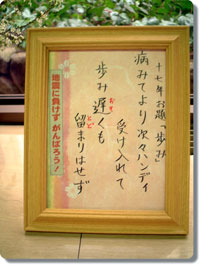 十七年お題「歩み」
病みてより次々ハンディ
受け入れて
歩み遅くも
留まりはせず
地震に負けず がんばろう!